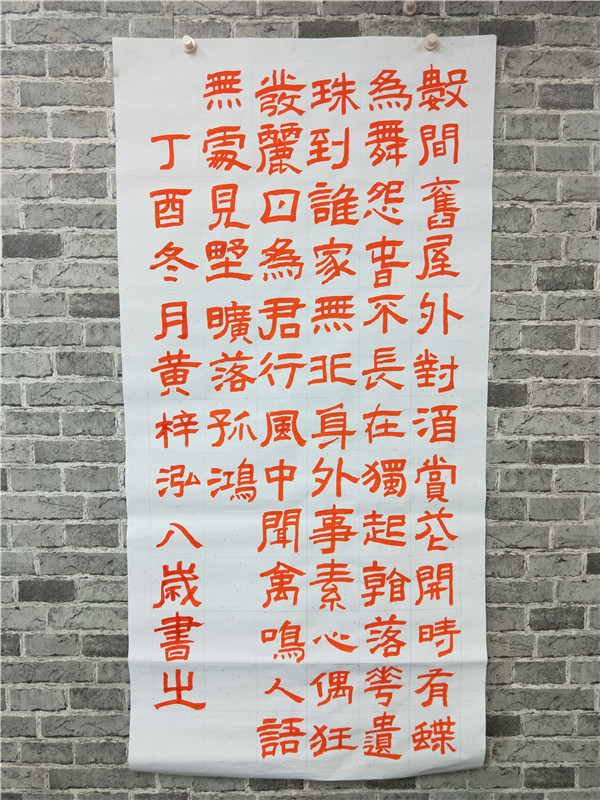 數間舊屋外對酒賞花開時有蝶
為舞怨春不長在獨起朝落華遺
珠到誰家無非身外事素心偶狂
發麗日為君行風中聞禽鳴人語
無處見野曠落孤鴻
丁酉冬月黃梓泓八歲書之